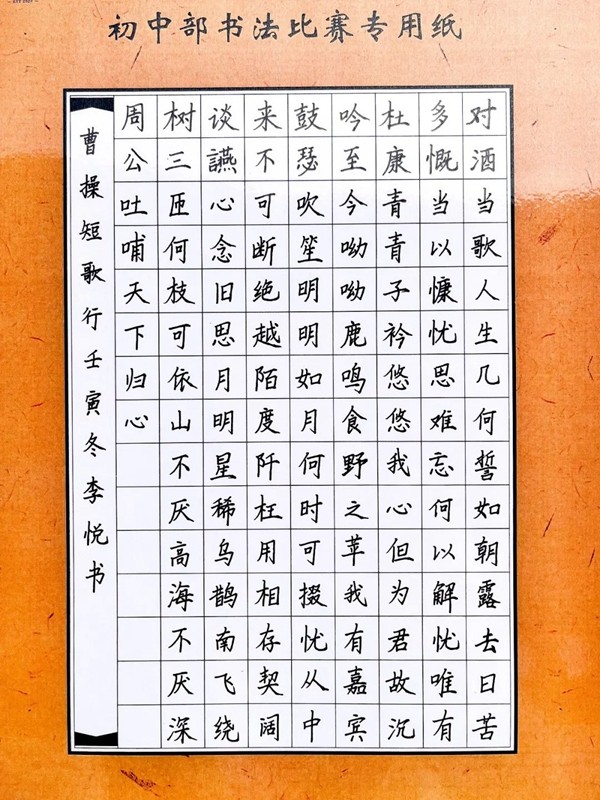 初中部书法比赛专用纸
对酒当歌人生几何誓如朝露去日苦
多慨当以慷忧思难忘何以解忧唯有
杜康青青子衿悠悠我心但为君故沉
吟至今呦呦鹿鸣食野之苹我有嘉宾
鼓瑟吹笙明明如月何时可掇忧从中
来不可断绝越陌度阡枉用相存契阔
谈讌心念旧思月明星稀乌鹊南飞绕
树三匝何枝可依山不厌高海不厌深
周公吐哺天下归心
曹操短歌行壬寅冬李悦书